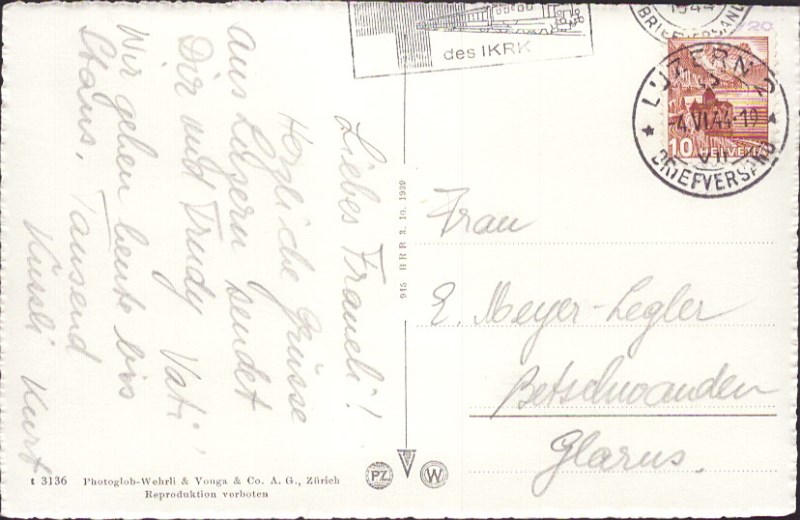 Liebes Fraueli!
Herzliche Grüsse
aus Luzern sendet
Dir und Trudy Vati,
Wir gehen heute bis
Stans. Tausend
Küssli Kurt
des IKRK
1944
BRIEFVERSAND
20
LUZERN 2
-4.VI.44-19
VII
BRIEFVERSAND
10 HELVETIA
Frau
E. Meyer-Legler
Betschwanden
Glarus.
915 BRB 3. 10. 1939
t 3136 Photoglob-Wehrli & Vouga & Co. A. G., Zürich
Reproduktion verboten
PZ
W